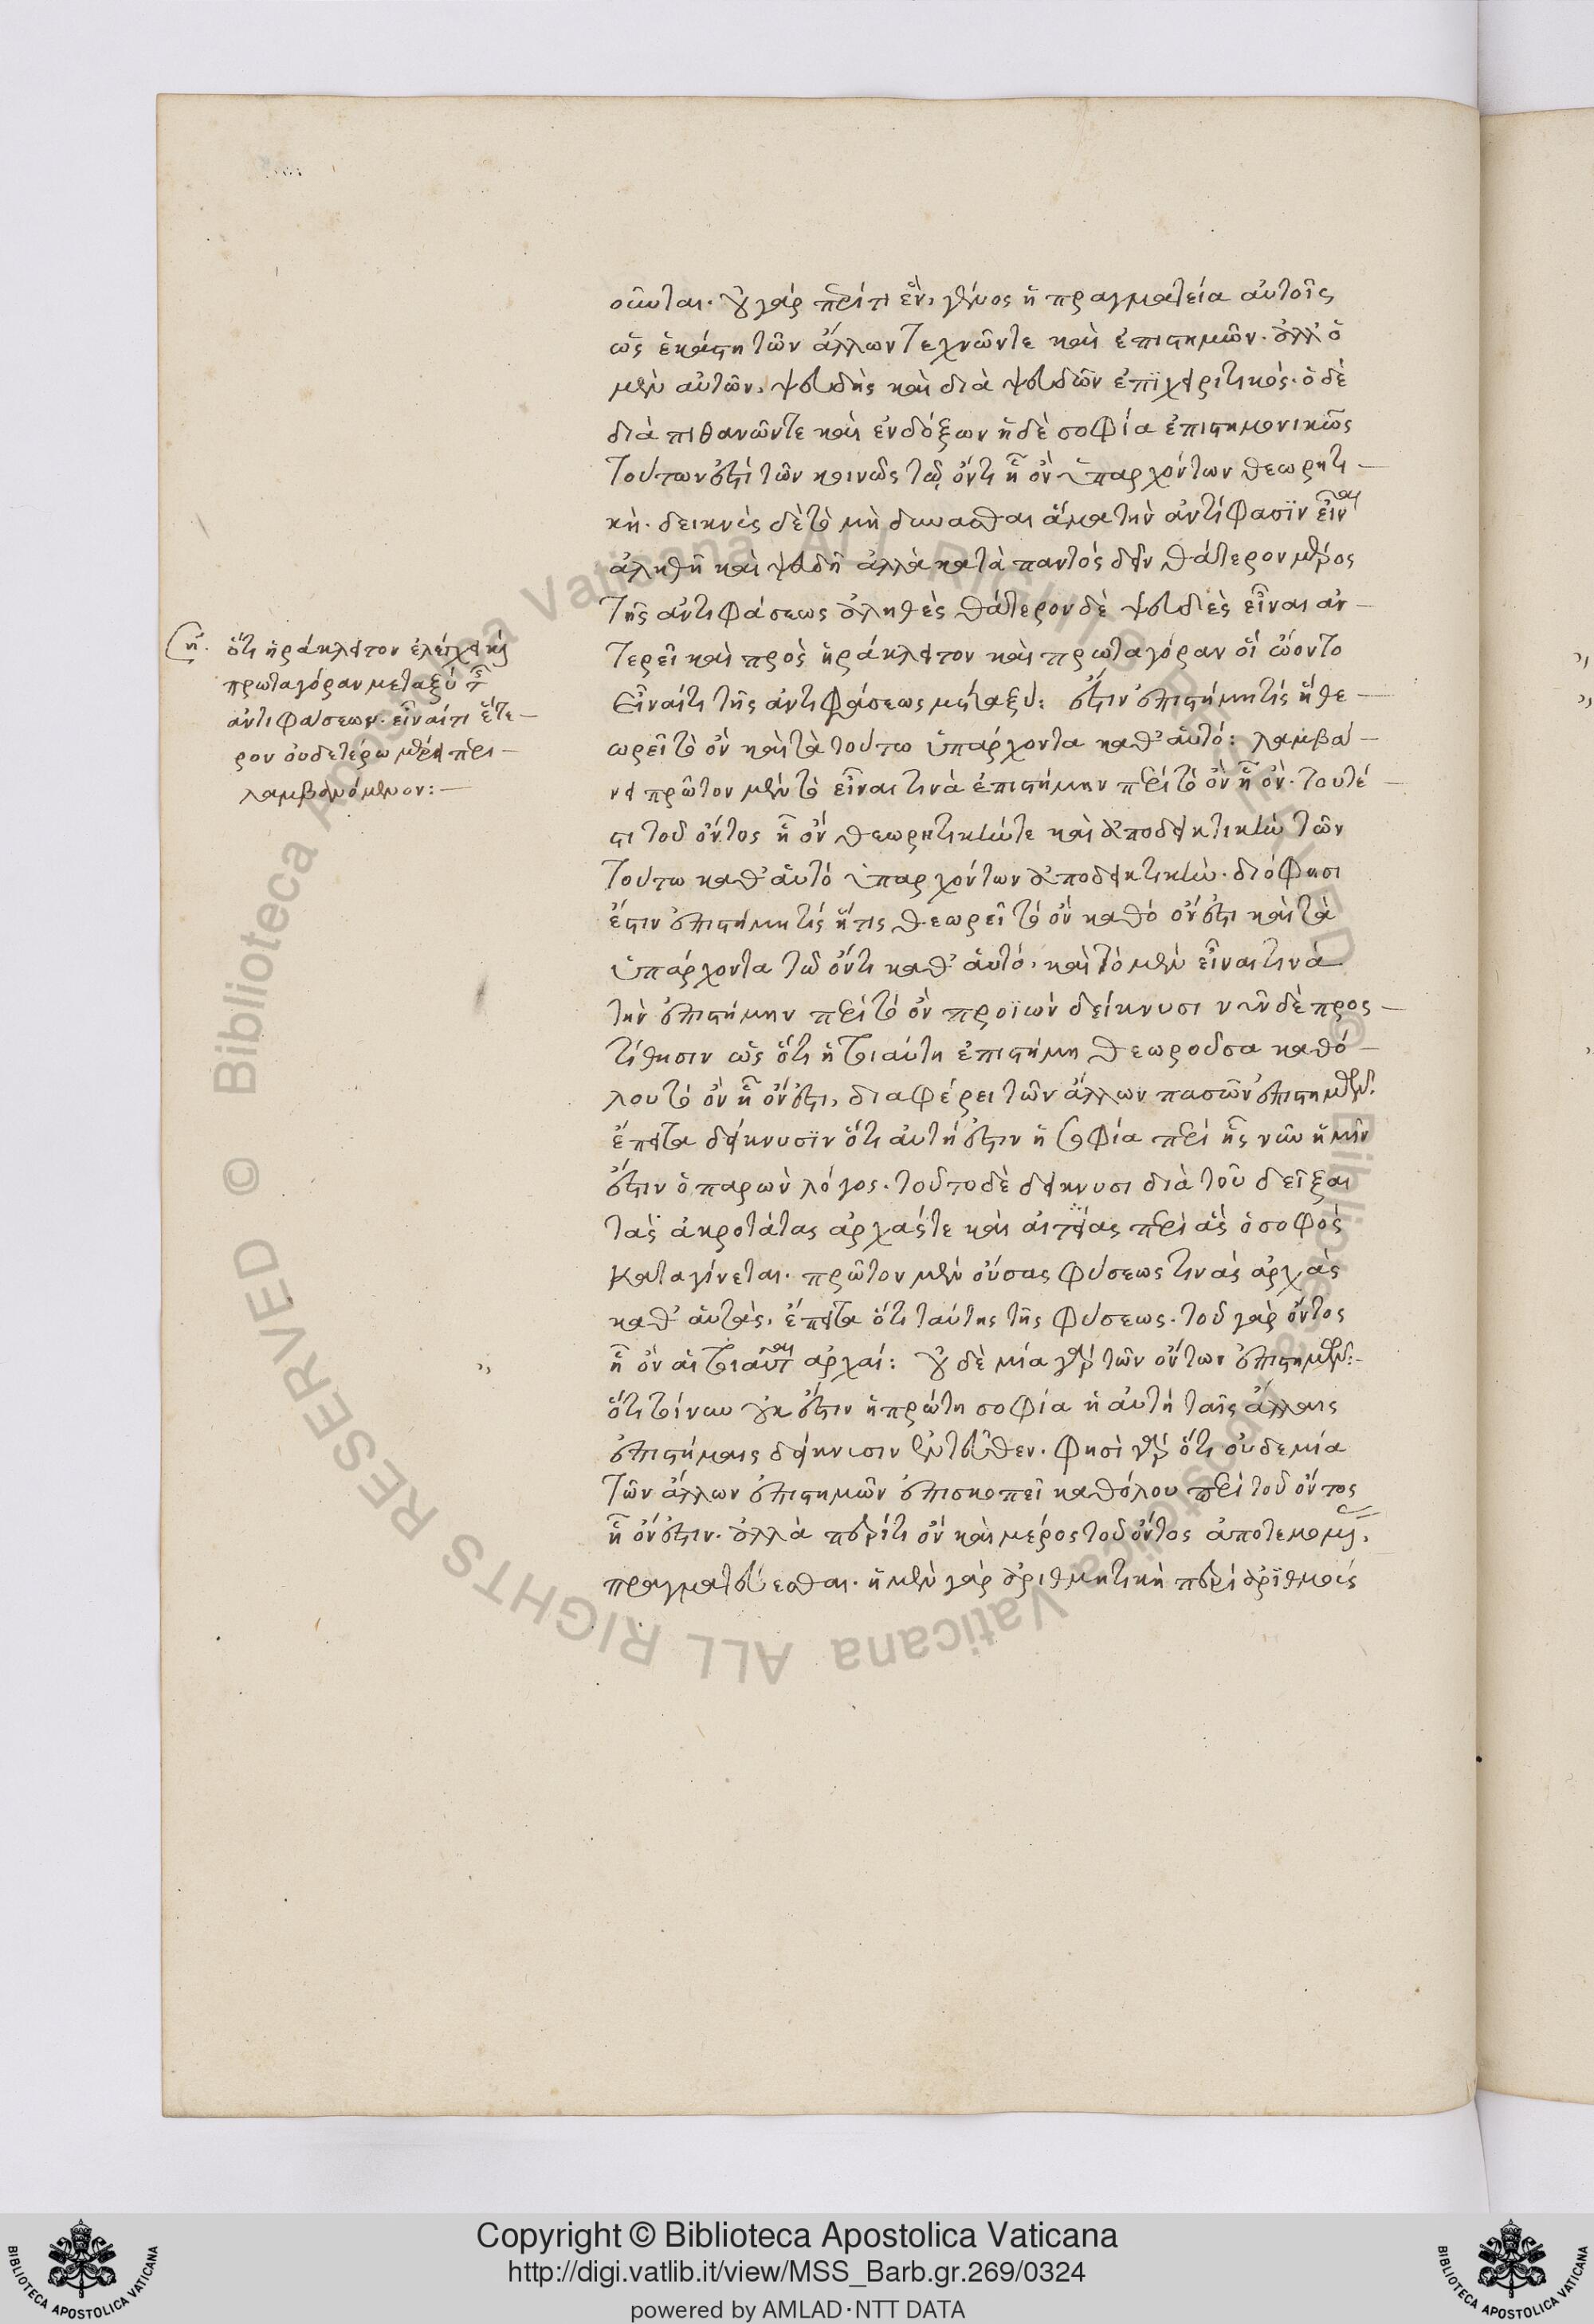 οῦνται. οὐ γάρ περί τι ἕν, γένος ἡ πραγματεία αὐτοῖς
ὡς ἑκάστη τῶν ἄλλων τεχνῶντε καὶ ἐπιστημῶν. ἀλλ' ὁ
μὲν αὐτῶν, ψευδὴς καὶ διὰ ψευδῶν ἐπιχειριτικός. ὁ δὲ
διὰ πιθανῶντε καὶ ἐνδόξων ἡ δὲ σοφία ἐπιστημονικῶς
τούτων ἐστὶ τῶν κοινῶς τῷ ὄντι ᾗ ὂν ὑπαρχόντων θεωρητι-
κή. δεικνὺς δὲ τὸ μὴ δύνασθαι ἅμα τὴν ἀντίφασιν εἶναι
ἀληθῆ καὶ ψευδῆ ἀλλὰ κατὰ παντὸς δεῖν θάτερον μέρος
τῆς ἀντιφάσεως ἀληθὲς θάτερον δὲ ψευδὲς εἶναι ἀν-
τερεῖ καὶ πρὸς ἡράκλειτον καὶ πρωταγόραν οἳ ᾤοντο
Εἶναί τι τῆς ἀντιφάσεως μεταξύ: ἔστιν ἐπιστήμη τίς ἣ θε-
ωρεῖ τὸ ὂν καὶ τὰ τούτω ὑπάρχοντα καθ' αὑτό: λαμβά-
νει πρῶτον μὲν τὸ εἶναι τινὰ ἐπιστήμην περὶ τὸ ὂν ᾗ ὄν. τουτέ-
στι τοῦ ὄντος ᾗ ὂν θεωρητικήν τε καὶ ἀποδεικτικὴν τῶν
τούτω καθ' αὑτό ὑπαρχόντων ἀποδεικτικήν. διό φησι
ἔστιν ἐπιστήμη τίς ἥτις θεωρεῖ τὸ ὂν καθό ὄν ἐστι καὶ τὰ
ὑπάρχοντα τῷ ὄντι καθ' αὑτό. καὶ τὸ μὲν εἶναι τινὰ
τὴν ἐπιστήμην περὶ τὸ ὂν προϊὼν δείκνυσι νῦν δὲ προς-
τίθησιν ὡς ὅτι ἡ τοιαύτη ἐπιστήμη θεωροῦσα καθό-
λου τὸ ὂν ᾗ ὄν ἐστι, διαφέρει τῶν ἄλλων πασῶν ἐπιστημῶν.
ἔπειτα δείκνυσιν ὅτι αὐτή ἐστιν ἡ σοφία περὶ ἧς νῦν ἡμῖν
ἐστιν ὁ παρὼν λόγος. τοῦτο δὲ δείκνυσι διὰ τοῦ δεῖξαι
τὰς ἀκροτάτας ἀρχάς τε καὶ αἰτίας περὶ ἃς ὁ σοφὸς
καταγίνεται. πρῶτον μὲν οὔσας φύσεως τινὰς ἀρχὰς
καθ' αὑτάς, ἔπειτα ὅτι ταύτης τῆς φύσεως. τοῦ γὰρ ὄντος
ᾗ ὂν αἱ τοιαῦται ἀρχαί: οὐδὲ μία γὰρ τῶν ὄντων ἐπιστημῶν:-
ὅτι τοίνυν οὐκ ἔστιν ἡ πρώτη σοφία ἡ αὐτή ταῖς ἄλλαις
ἐπιστήμαις δείκνυσιν ἐντεῦθεν. φησὶ γὰρ ὅτι οὐδεμία
τῶν ἄλλων ἐπιστημῶν ἐπισκοπεῖ καθόλου περὶ τοῦ ὄντος
ᾗ ὄν ἐστιν. ἀλλὰ περί τι ὂν καὶ μέρος τοῦ ὄντος ἀποτεμομένη,
πραγματεύεσθαι. ἡ μὲν γὰρ ἀριθμητικὴ περὶ ἀριθμοὺς
ση. ὅτι ἡράκλειτον ἐλέγχει καὶ
πρωταγόραν μεταξύ τῆς
ἀντιφάσεως. εἶναί τι ἕτε-
ρον οὐδετέρω μέρει περι-
λαμβανόμενον:-
Copyright © Biblioteca Apostolica Vaticana
http://digi.vatlib.it/view/MSS_Barb.gr.269/0324
powered by AMLAD·NTT DATA
BIBLIOTECA APOSTOLICA VATICANA
BIBLIOTECA APOSTOLICA VATICANA
© Biblioteca Apostolica Vaticana ALL RIGHTS RESERVED
© Biblioteca Apostolica Vaticana ALL RIGHTS RESERVED